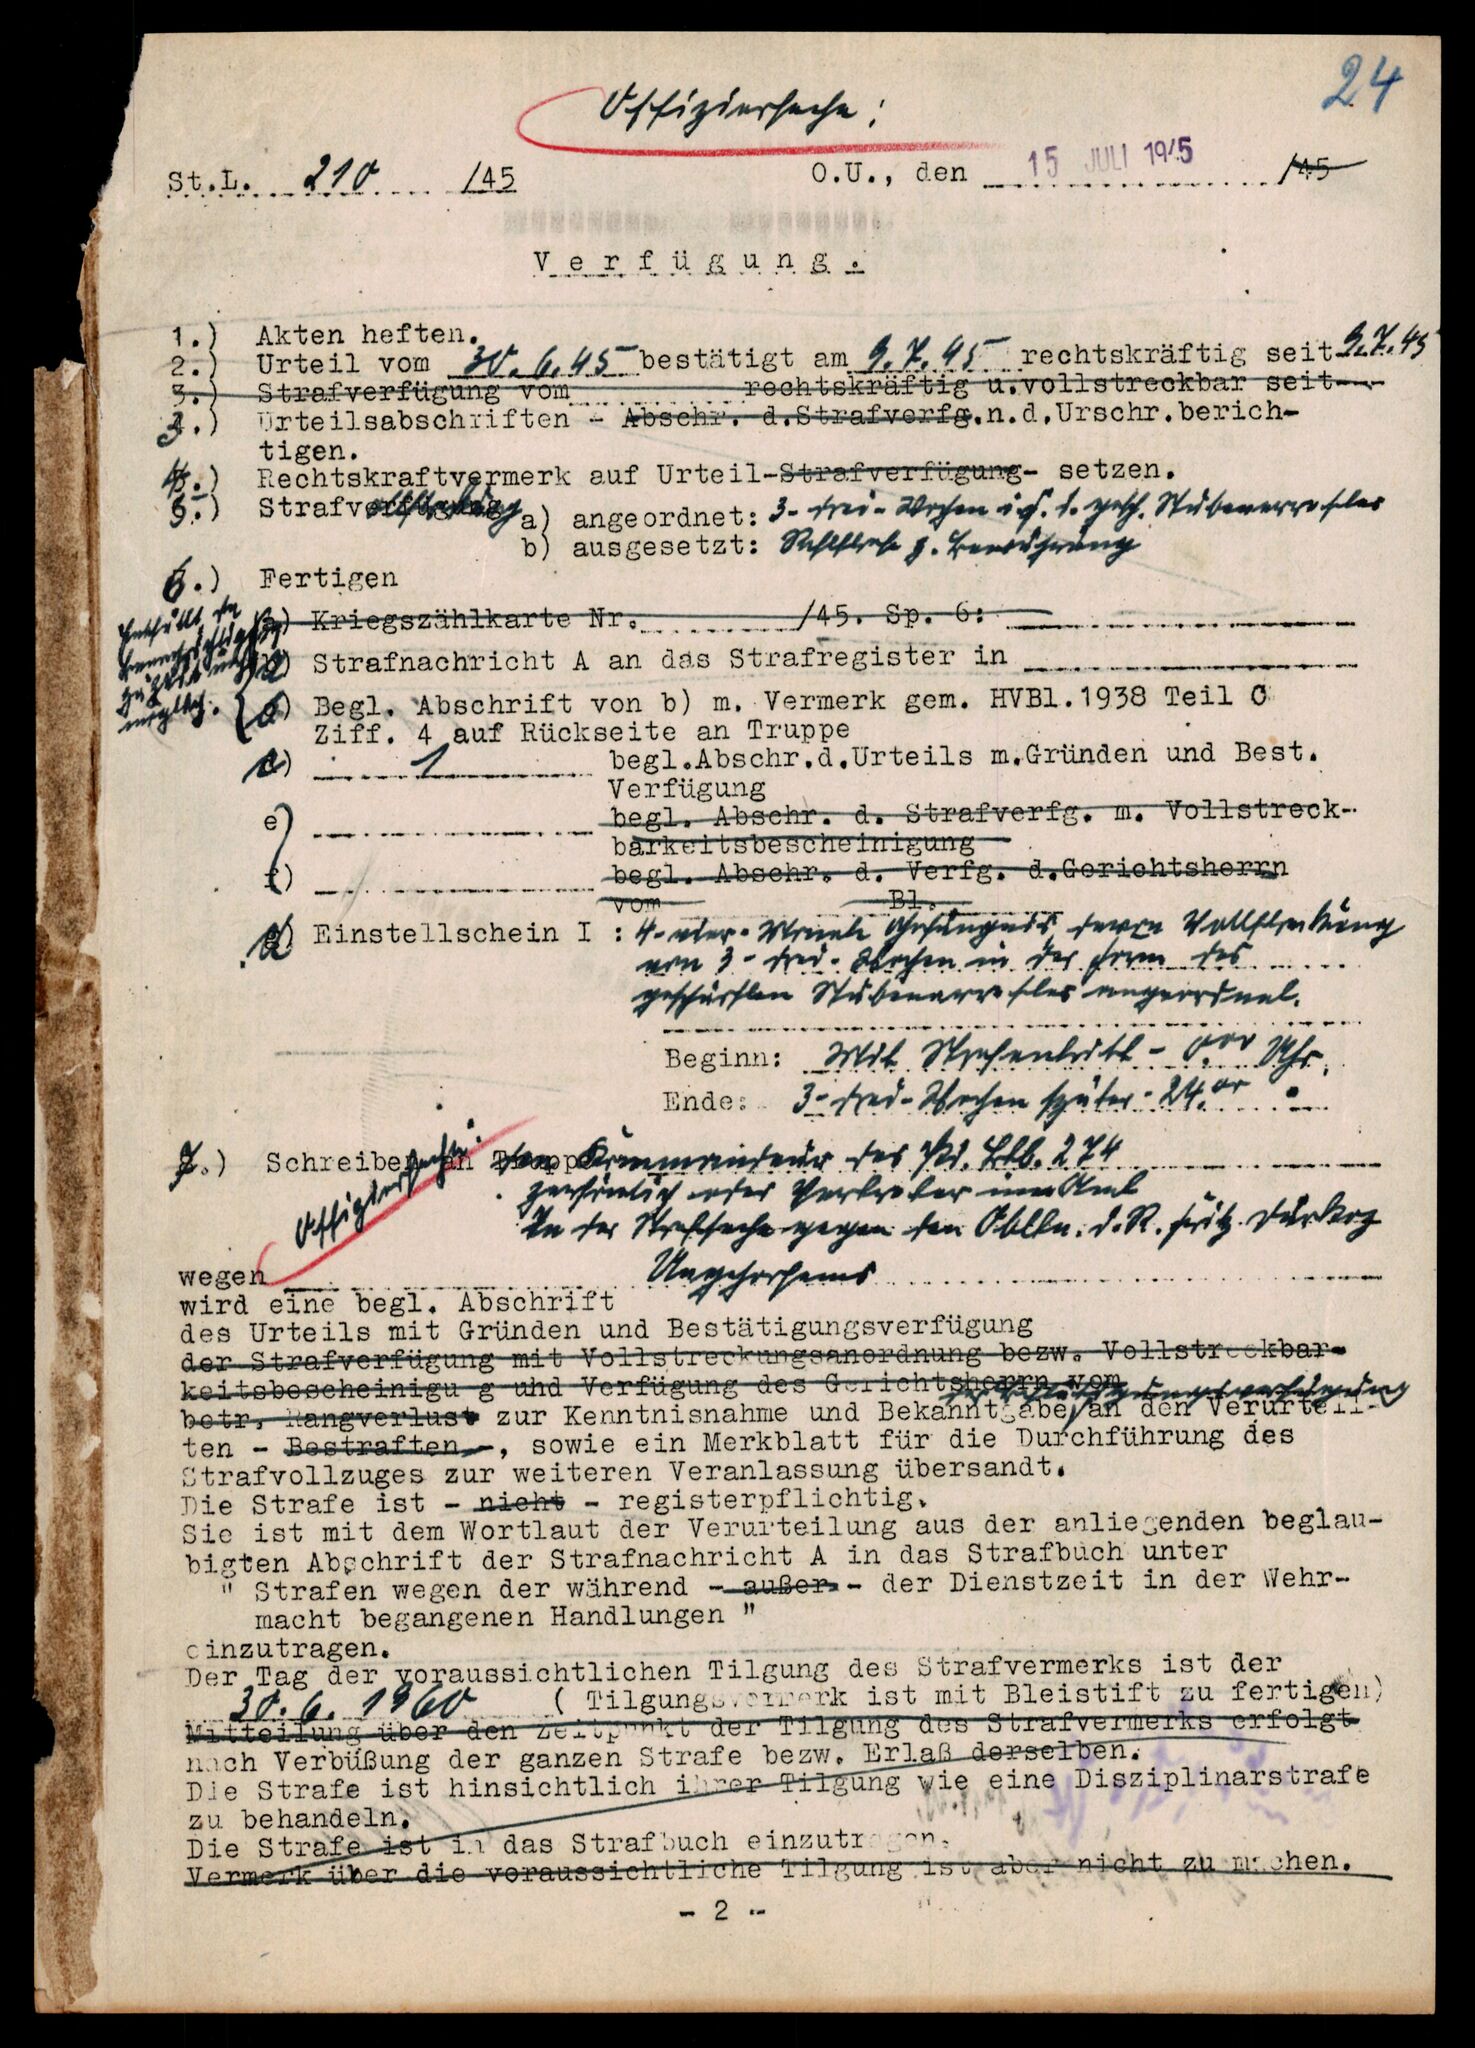 24
Offizierssache!
St.L. 210 /45
O.U., den 15 JULI 1945 /45
Verfügung.
1.) Akten heften.
2.) Urteil vom 30.6.45 bestätigt am 9.7.45 rechtskräftig seit 9.7.45
3.) Strafverfügung vom rechtskräftig u.vollstreckbar seit
3.) Urteilsabschriften - Abschr. d.Strafverfg.n.d.Urschr.berich-
tigen.
4.) Rechtskraftvermerk auf Urteil-Strafverfügung- setzen.
5.) Strafvollstreckung a) angeordnet: 3-drei-Wochen i.F. d. gesch. Stubenarrestes
b) ausgesetzt: Reststrafe z. Bewährung
6.) Fertigen
Entfällt, da
Benachrichtigung
zur Zeit nicht
möglich.
a) Kriegszählkarte Nr. /45. Sp. 6:
b) Strafnachricht A an das Strafregister in
Begl. Abschrift von b) m. Vermerk gem. HVBl.1938 Teil C
Ziff. 4 auf Rückseite an Truppe
1 begl.Abschr.d.Urteils m.Gründen und Best.
Verfügung
e) begl. Abschr. d. Strafverfg. m. Vollstreck-
barkeitsbescheinigung
f) begl. Abschr. d. Verfg. d.Gerichtsherrn
vom Bl.
Einstellschein I : 4-vier-Monate Gefängnis deren Vollstreckung
von 3-drei-Wochen in der Form des
geschärften Stubenarrestes angeordnet.
Beginn: Mit Strafantritt - 0.00 Uhr.
Ende: 3-drei-Wochen später - 24.00 "
7.) Schreiben an Truppe: dem Kommandeur des Pi. Btl. 274
persönlich oder Vertreter im Amt
Offizierssache!
In der Strafsache gegen den Obltn. d.R. Fritz
wegen Ungehorsams
wird eine begl. Abschrift
des Urteils mit Gründen und Bestätigungsverfügung
der Strafverfügung mit Vollstreckungsanordnung bezw. Vollstreckbar-
keitsbescheinigu g uhd Verfügung des Gerichtsherrn vom
der Bestätigungsverfügung
betr. Rangverlust zur Kenntnisnahme und Bekanntgabe an den Verurteil-
ten - Bestraften -, sowie ein Merkblatt für die Durchführung des
Strafvollzuges zur weiteren Veranlassung übersandt.
Die Strafe ist - nicht - registerpflichtig.
Sie ist mit dem Wortlaut der Verurteilung aus der anliegenden beglau-
bigten Abschrift der Strafnachricht A in das Strafbuch unter
" Strafen wegen der während - außer - der Dienstzeit in der Wehr-
macht begangenen Handlungen "
einzutragen.
Der Tag der voraussichtlichen Tilgung des Strafvermerks ist der
30.6.1960 ( Tilgungsvermerk ist mit Bleistift zu fertigen)
Mitteilung über den Zeitpunkt der Tilgung des Strafvermerks erfolgt
nach Verbüßung der ganzen Strafe bezw. Erlaß derselben.
Die Strafe ist hinsichtlich ihrer Tilgung wie eine Disziplinarstrafe
zu behandeln.
Die Strafe ist in das Strafbuch einzutragen.
Vermerk über die voraussichtliche Tilgung ist aber nicht zu machen.
- 2 -